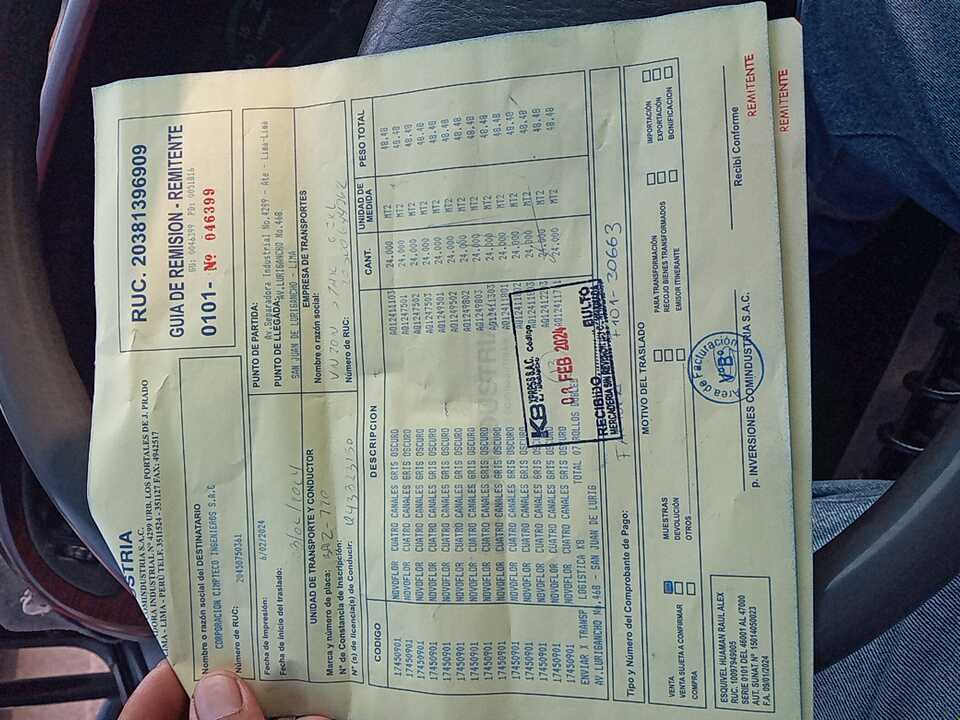 USTRIA
OMINDUSTRIA S.A.C.
DORA INDUSTRIAL Nº 4299 URB. LOS PORTALES DE J. PRADO
LIMA - LIMA - PERÚ TELF. 3511524 - 351127 FAX: 4942517
RUC. 20381396909
GUIA DE REMISION - REMITENTE
GU: 0046399 PD: 0051816
0101- Nº 046399
Nombre o razón social del DESTINATARIO
CORPORACION CIMPTECO INGENIEROS S.A.C
Número de RUC: 20450750361
PUNTO DE PARTIDA: Av.Separadora Industrial No.4299 - Ate - Lima-Lima
PUNTO DE LLEGADA: AV.LURIGANCHO No.468
SAN JUAN DE LURIGANCHO - LIMA
Fecha de Impresión: 6/02/2024
Fecha de inicio del traslado:
EMPRESA DE TRANSPORTES
Nombre o razón social:
Número de RUC:
UNIDAD DE TRANSPORTE Y CONDUCTOR
Marca y número de placa:
N° de Constancia de Inscripción:
N° (s) de licencia(s) de Conducir:
CODIGO DESCRIPCION CANT. UNIDAD DE MEDIDA PESO TOTAL
17450901 NOVOFLOR CUATRO CANALES GRIS OSCURO AQ12411103 24.000 MT2 48.48
17450901 NOVOFLOR CUATRO CANALES GRIS OSCURO AQ1247501 24.000 MT2 48.48
17450901 NOVOFLOR CUATRO CANALES GRIS OSCURO AQ1247502 24.000 MT2 48.48
17450901 NOVOFLOR CUATRO CANALES GRIS OSCURO AQ1247503 24.000 MT2 48.48
17450901 NOVOFLOR CUATRO CANALES GRIS OSCURO AQ1249501 24.000 MT2 48.48
17450901 NOVOFLOR CUATRO CANALES GRIS OSCURO AQ1249502 24.000 MT2 48.48
17450901 NOVOFLOR CUATRO CANALES GRIS OSCURO AQ1249802 24.000 MT2 48.48
17450901 NOVOFLOR CUATRO CANALES GRIS OSCURO AQ1249803 24.000 MT2 48.48
17450901 NOVOFLOR CUATRO CANALES GRIS OSCURO AQ12411303 24.000 MT2 48.48
17450901 NOVOFLOR CUATRO CANALES GRIS OSCURO 24.000 MT2 48.48
17450901 NOVOFLOR CUATRO CANALES GRIS OSCURO 24.000 MT2 48.48
17450901 NOVOFLOR CUATRO CANALES GRIS OSCURO 24.000 MT2 48.48
17450901 NOVOFLOR CUATRO CANALES GRIS OSCURO 24.000 MT2 48.48
17450901 NOVOFLOR CUATRO CANALES GRIS OSCURO 24.000 MT2 48.48
ENVIAR X TRANSP LOGISTICA K8 TOTAL 07 ROLLOS DOBLES
AV.LURIGANCHO No.468 - SAN JUAN DE LURIG
K8 XPRESS S.A.C. Código
02 FEB 2024
RECIBIDO BULTO
MERCADERIA SIN
Tipo y Número del Comprobante de Pago: F101-30663
MOTIVO DEL TRASLADO
VENTA
VENTA SUJETA A CONFIRMAR
COMPRA
MUESTRAS
DEVOLUCIÓN
OTROS
PARA TRANSFORMACIÓN
RECOJO BIENES TRANSFORMADOS
EMISOR ITINERANTE
IMPORTACIÓN
EXPORTACIÓN
BONIFICACION
Area de Facturación
VºBº
ESQUIVEL HUAMAN RAUL ALEX
RUC. 10097949905
SERIE 0101 DEL 46001 AL 47000
AUT. SUNAT N° 15014050023
F.A. 09/01/2024
p. INVERSIONES COMINDUSTRIA S.A.C.
Recibí Conforme
REMITENTE
REMITENTE